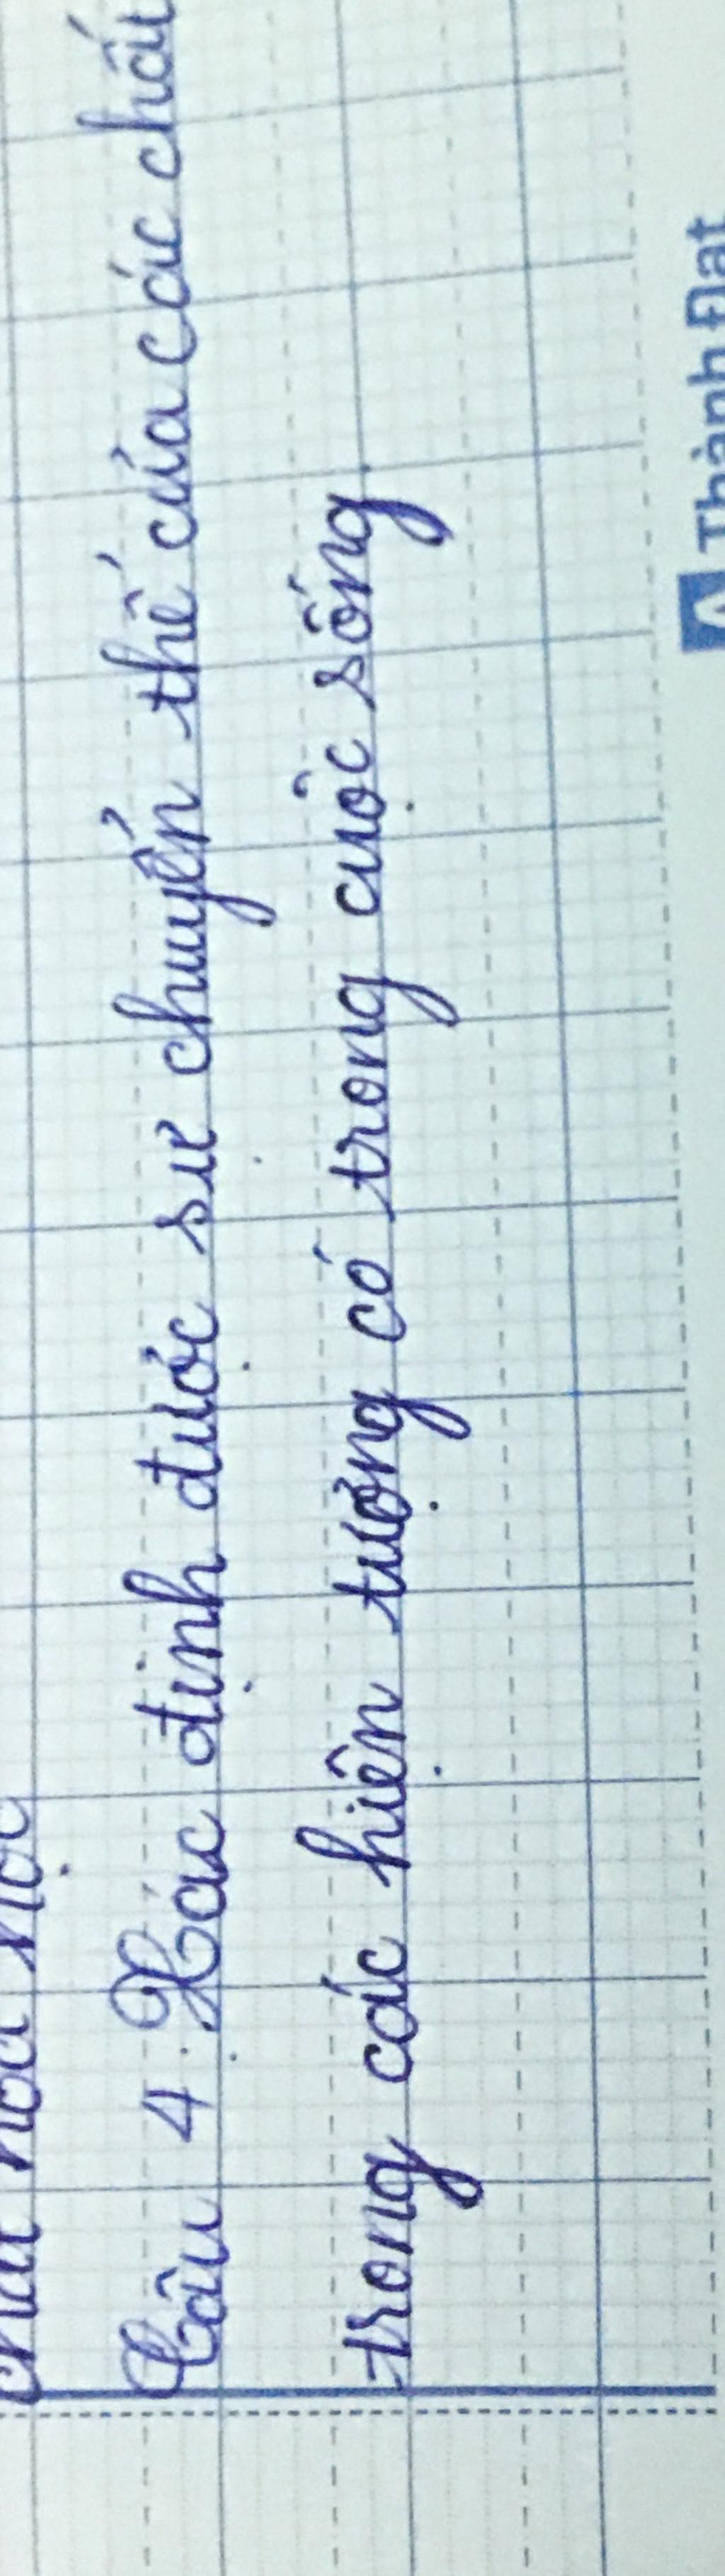 Câu 4: Xác định được sự chuyển thể của các chất
trong các hiện tượng có trong cuộc sống
Thành Đạt